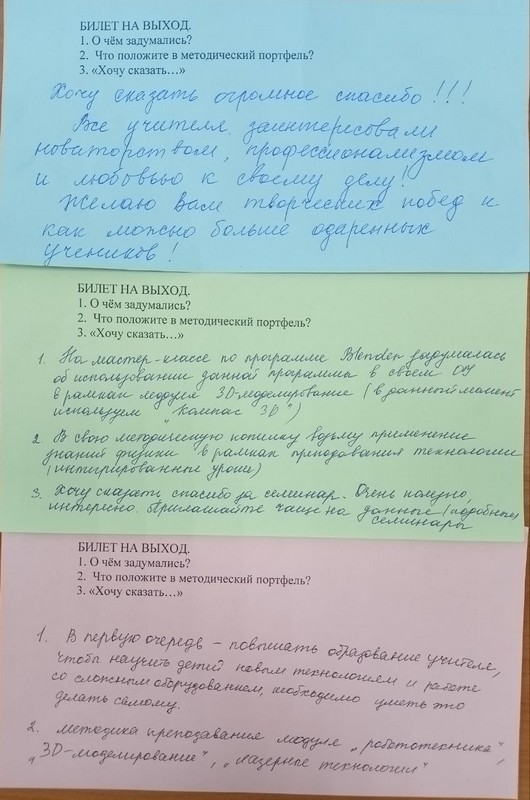 БИЛЕТ НА ВЫХОД.
1. О чём задумались?
2. Что положите в методический портфель?
3. «Хочу сказать…»
Хочу сказать огромное спасибо!!!
Все учителя заинтересовали
новаторством, профессионализмом
и любовью к своему делу!
Желаю Вам творческих побед и
как можно больше одаренных
учеников!
БИЛЕТ НА ВЫХОД.
1. О чём задумались?
2. Что положите в методический портфель?
3. «Хочу сказать…»
1. На мастер-классе по программе Blender задумалась
об использовании данной программы в своем ОУ
в рамках модуля 3D-моделирование (в данный момент
используем "Компас 3D")
2. В свою методическую копилку возьму применение
знаний физики в рамках преподавания технологии
(интегрированные уроки)
3. Хочу сказать спасибо за семинар. Очень полезно,
интересно. Приглашайте чаще на данные (подобные)
семинары
БИЛЕТ НА ВЫХОД.
1. О чём задумались?
2. Что положите в методический портфель?
3. «Хочу сказать…»
1. В первую очередь – повышать образование учителя,
чтобы научить детей новым технологиям и работе
со сложным оборудованием, необходимо уметь это
делать самому.
2. методика преподавание модуле „робототехника",
„3D-моделирование", „лазерные технологии"